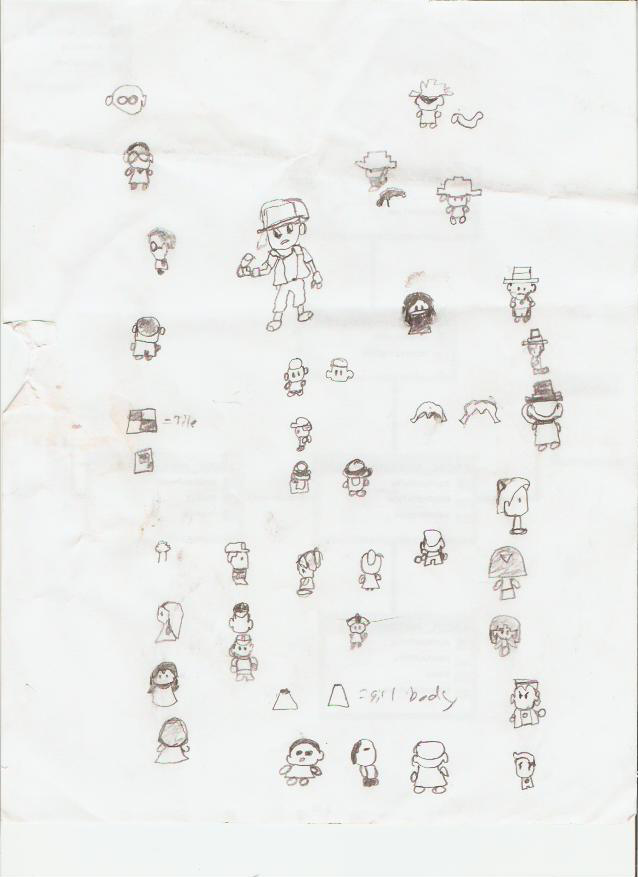 = Tile
= girl body